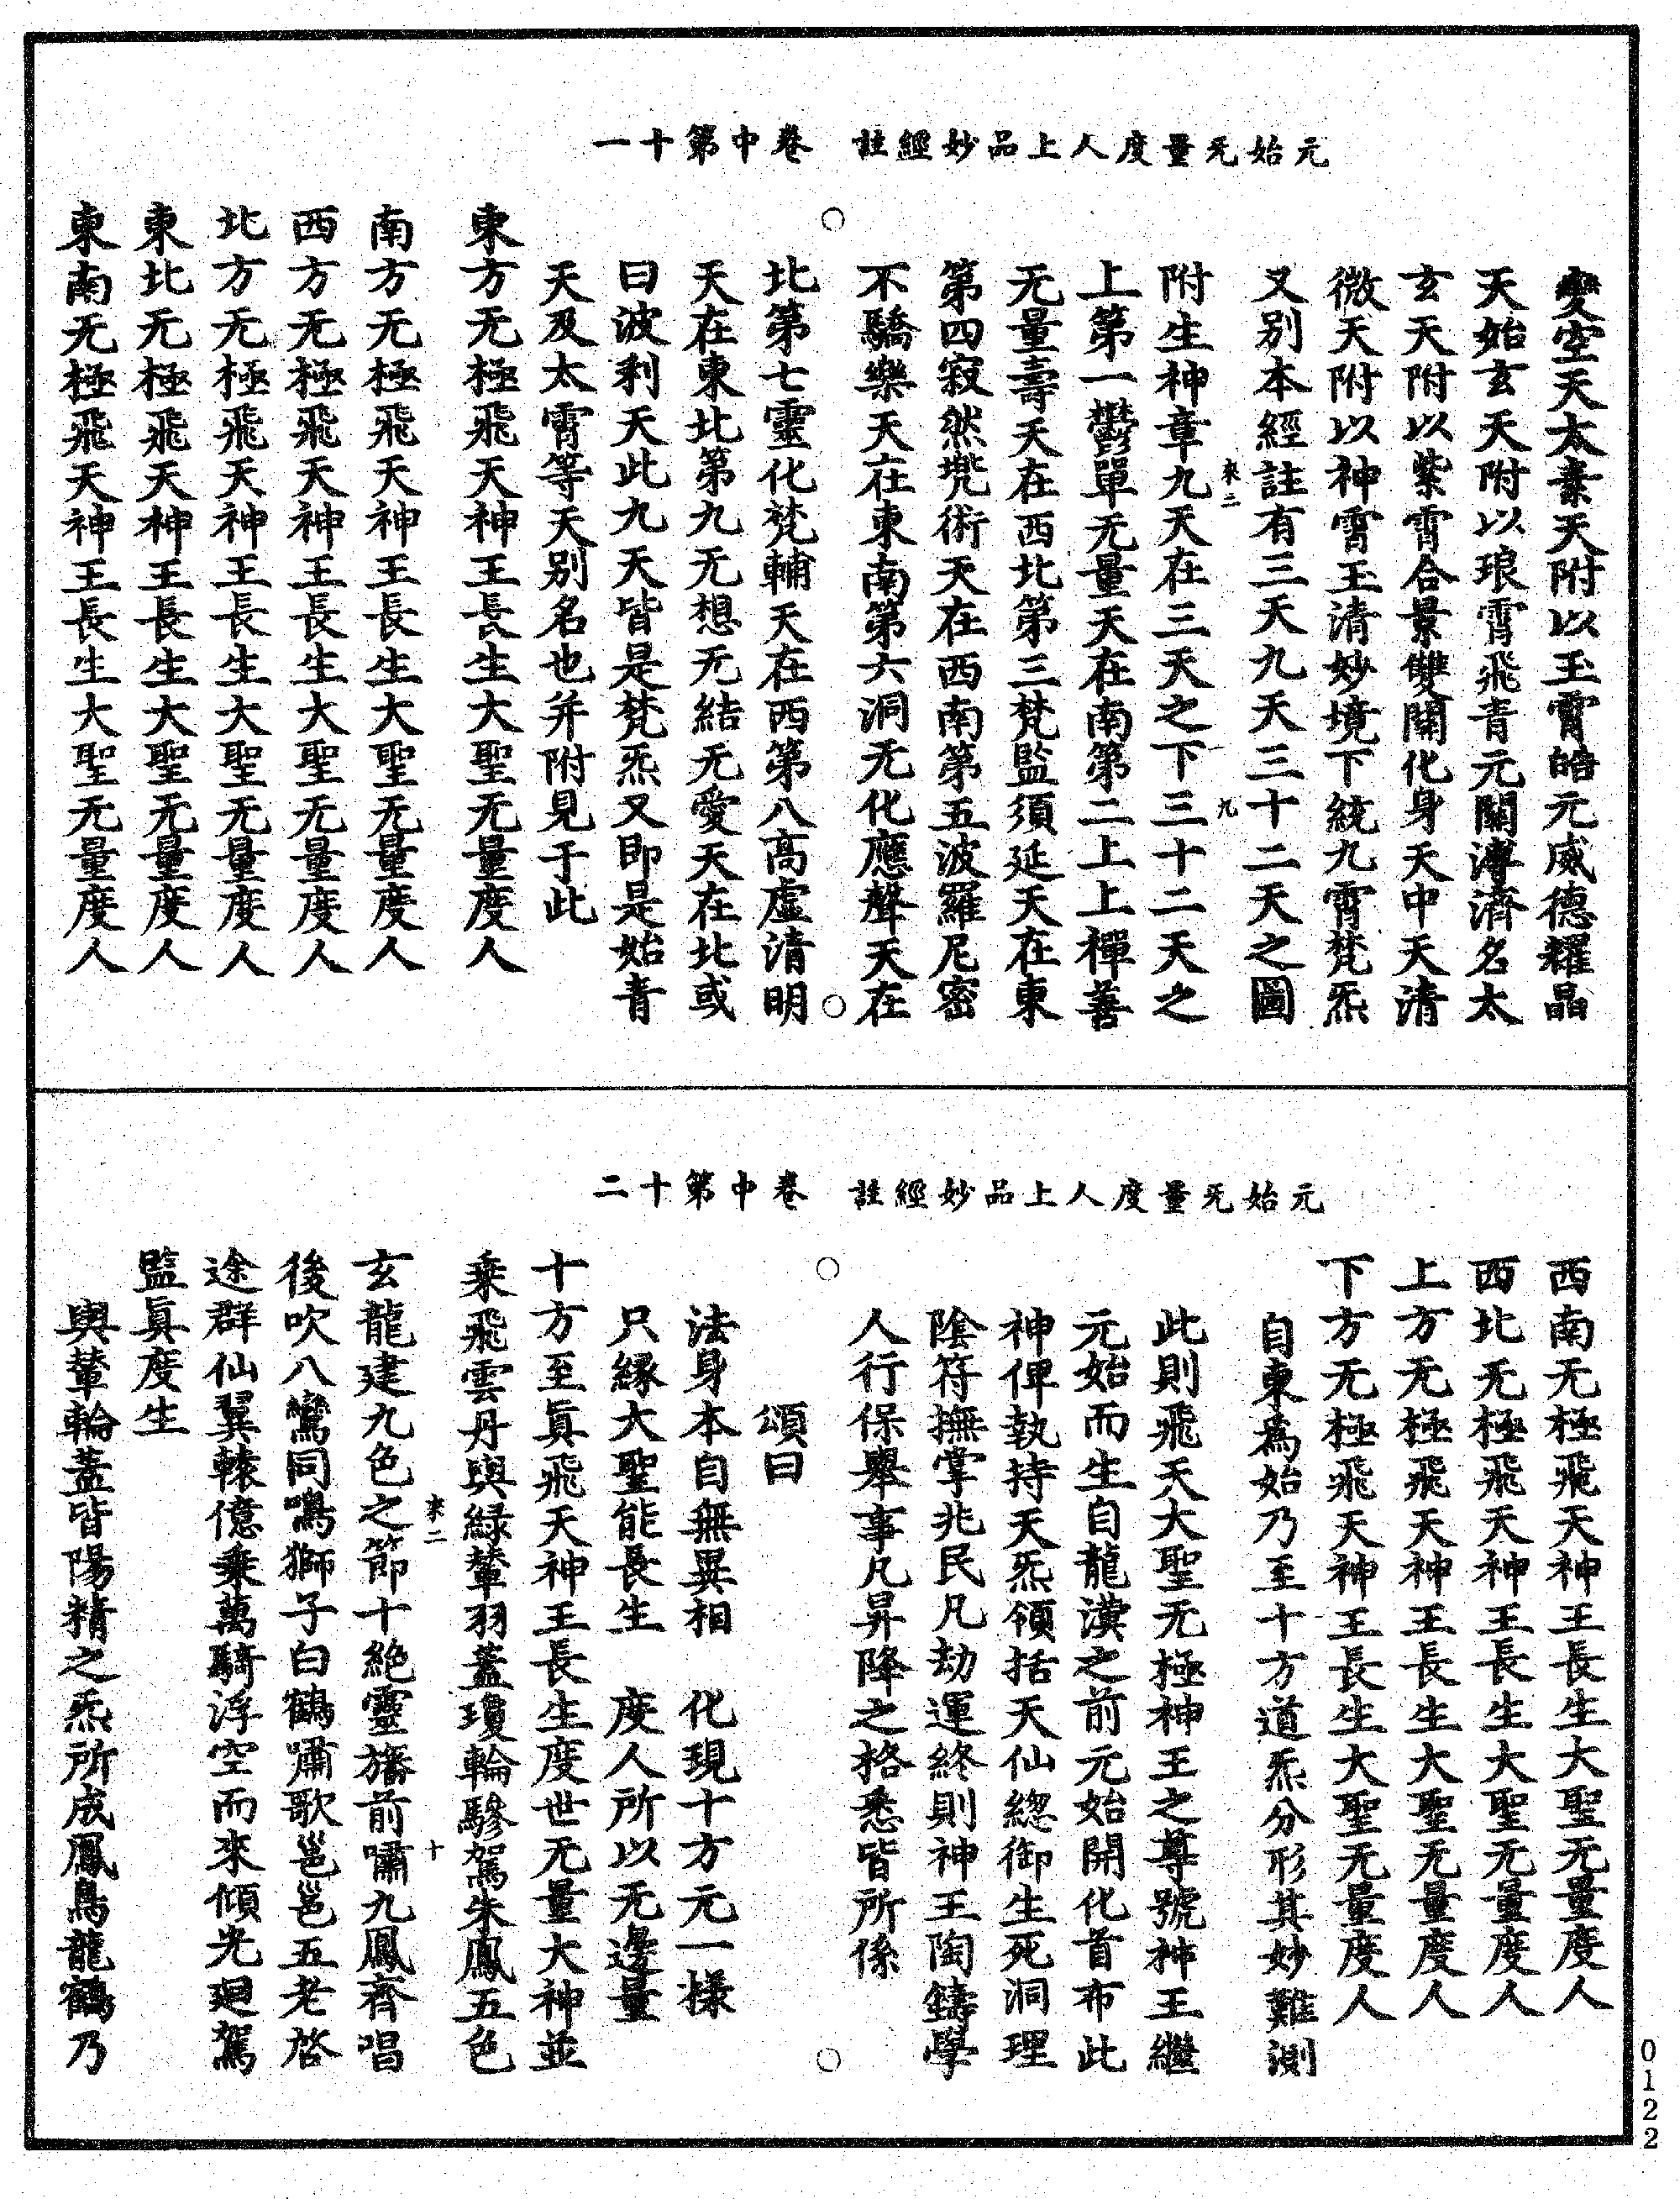 元始无量度人上品妙經註　卷中第十一
變空天太素天附以玉霄皓元威德耀晶
天始玄天附以琅霄飛青元關溥濟名太
玄天附以紫霄合景雙關化身天中天清
微天附以神霄玉清妙境下統九霄梵炁
又別本經註有三天九天三十二天之圖
來二
九
附生神章九天在三天之下三十二天之
上第一鬱單无量天在南第二上上禪善
无量壽天在西北第三梵監須延天在東
第四寂然兠術天在西南第五波羅尼密
不驕樂天在東南第六洞无化應聲天在
北第七靈化梵輔天在西第八高虛清明
天在東北第九无想无結无愛天在北或
曰波利天此九天皆是梵炁又即是始青
天及太霄等天別名也并附見于此
東方无極飛天神王長生大聖无量度人
南方无極飛天神王長生大聖无量度人
西方无極飛天神王長生大聖无量度人
北方无極飛天神王長生大聖无量度人
東北无極飛天神王長生大聖无量度人
東南无極飛天神王長生大聖无量度人
元始无量度人上品妙經註　卷中第十二
西南无極飛天神王長生大聖无量度人
西北无極飛天神王長生大聖无量度人
上方无極飛天神王長生大聖无量度人
下方无極飛天神王長生大聖无量度人
自東爲始乃至十方道炁分形其妙難測
此則飛天大聖无極神王之尊號神王繼
元始而生自龍漢之前元始開化首布此
神俾執持天炁領括天仙緫御生死洞理
陰符撫掌兆民凡劫運終則神王陶鑄學
人行保舉事凡昇降之格悉皆所係
頌曰
法身本自無異相　化現十方元一樣
只緣大聖能長生　度人所以无邊量
十方至眞飛天神王長生度世无量大神並
乘飛雲丹輿緑輦羽蓋瓊輪驂駕朱鳳五色
玄龍建九色之節十絶靈旛前嘯九鳳齊唱
來二
十
後吹八鸞同鳴獅子白鶴嘯歌邕邕五老啓
途群仙翼轅億乘萬騎浮空而來傾光廻駕
監眞度生
輿輦輪蓋皆陽精之炁所成鳳鳥龍鶴乃
0122